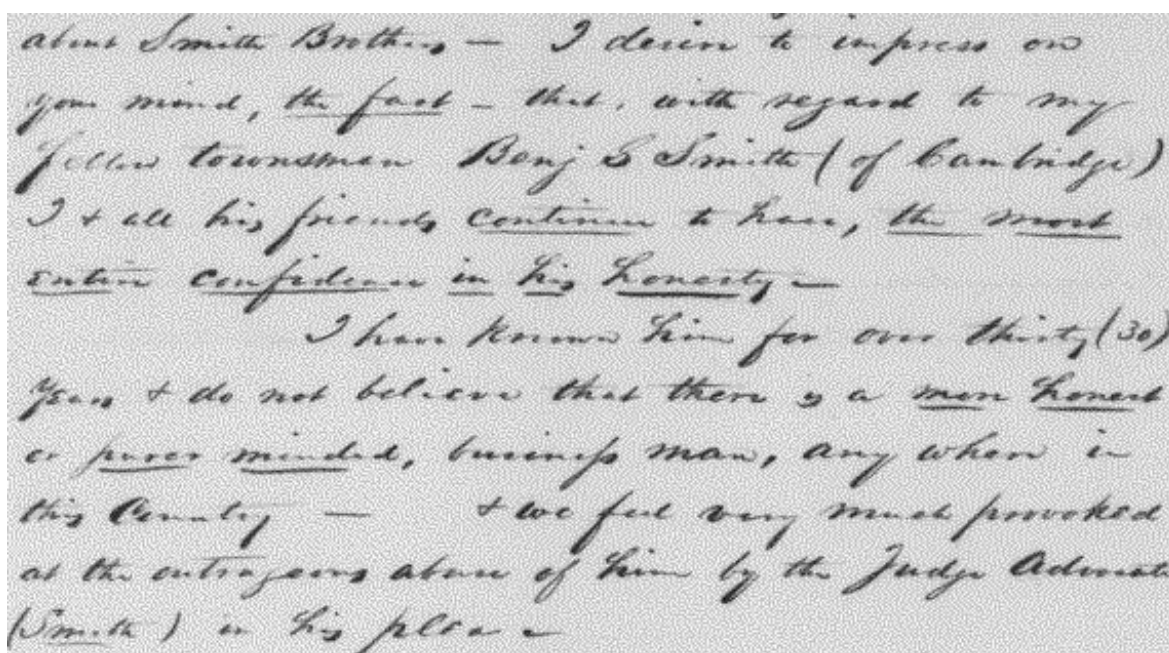 about Smith Brothers — I desire to impress on
your mind, the fact — that, with regard to my
fellow townsman Benj G Smith (of Cambridge)
I & all his friends continue to have, the most
entire confidence in his honesty —
I have known him for over thirty (30)
years & do not believe that there is a more honest
or purer minded, business man, any where in
this Country — & we feel very much provoked
at the outrageous abuse of him by the Judge Advocate
(Smith) in his plea —